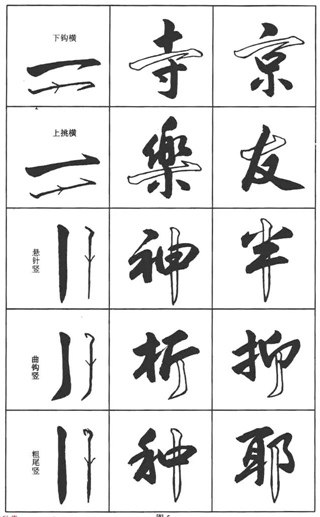 下钩横
寺
京
上挑横
樂
友
悬针竖
神
半
曲钩竖
折
抑
粗尾竖
种
耶